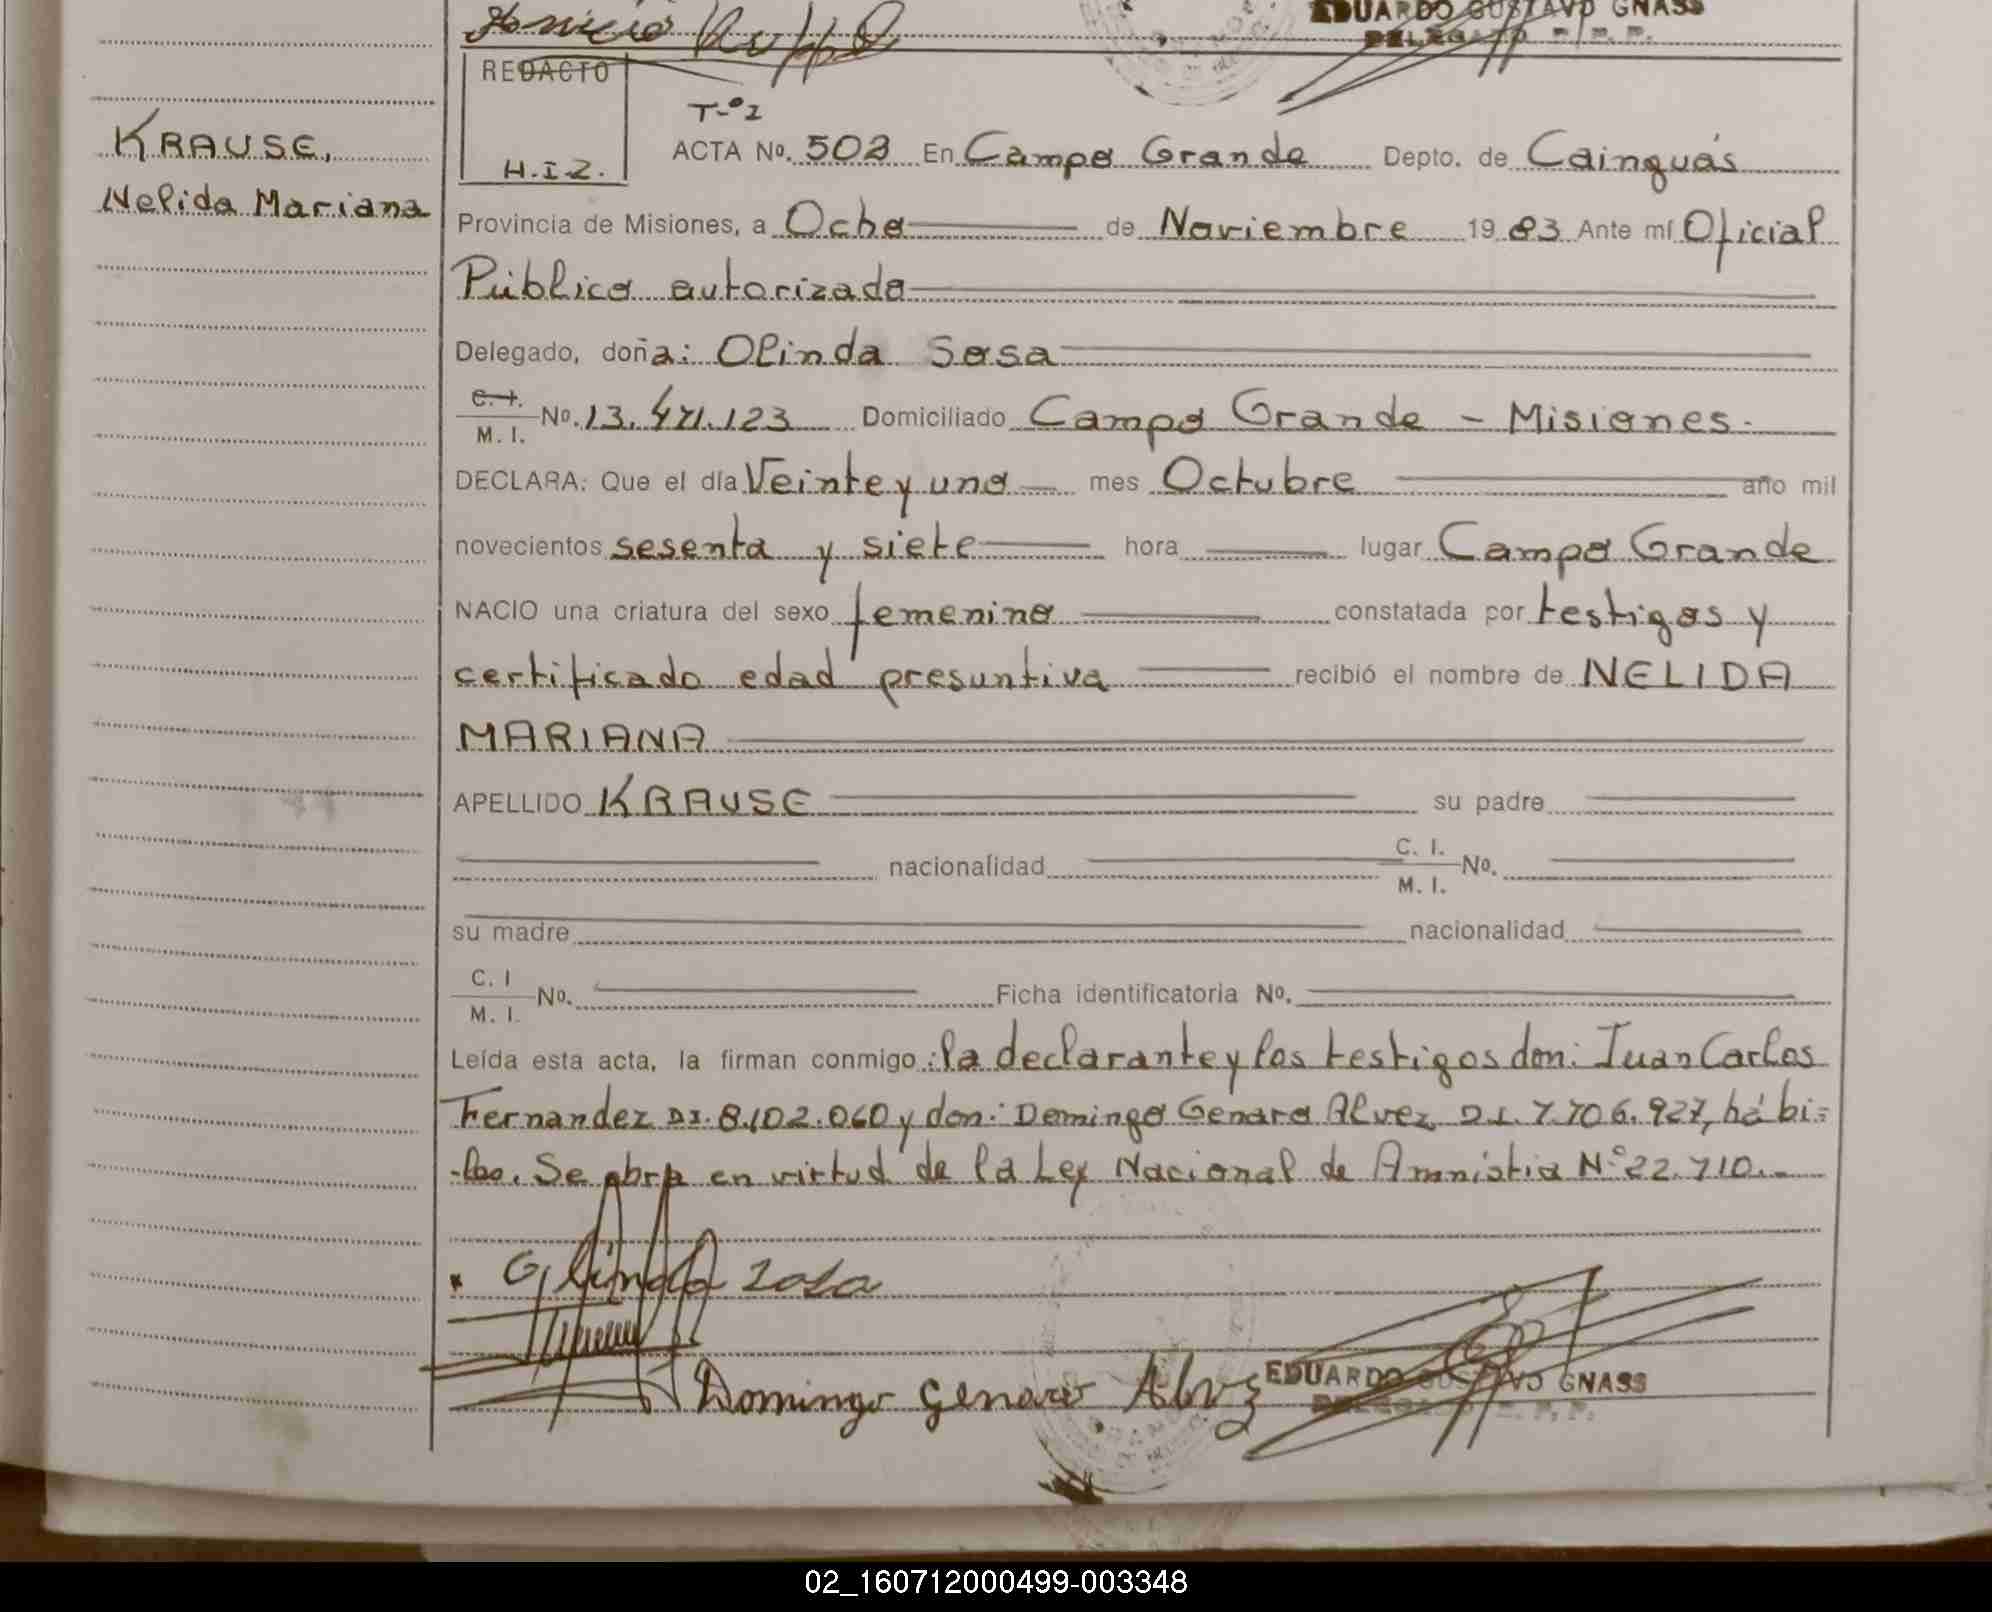 EDUARDO GUSTAVO GNASS
DELEGADO
REDACTO
H.I.Z.
T-º2
KRAUSE,
Nelida Mariana
ACTA Nº. 503 En Campo Grande Depto. de Cainguás
Provincia de Misiones, a Ocho de Noviembre 1983 Ante mí Oficial
Público autorizado
Delegado, doña: Olinda Sosa
C.I. M.I. Nº. 13.471.123 Domiciliado Campo Grande - Misiones.
DECLARA: Que el día Veinte y uno mes Octubre año mil
novecientos sesenta y siete hora lugar Campo Grande
NACIO una criatura del sexo femenino constatada por testigos y
certificado edad presuntiva recibió el nombre de NELIDA
MARIANA
APELLIDO KRAUSE su padre
nacionalidad C. I. M. I. Nº.
su madre nacionalidad
C. I M. I. Nº. Ficha identificatoria Nº.
Leída esta acta, la firman conmigo: la declarante y los testigos don: Juan Carlos
Fernandez DI. 8.102.060 y don: Domingo Genaro Alvez D.I. 7.706.927, hábi=
-les. Se abra en virtud de la Ley Nacional de Amnistia Nº 22.710.-
Olinda Sosa
Domingo Genaro Alvez
EDUARDO GUSTAVO GNASS
DELEGADO R. P. P.
02_160712000499-003348